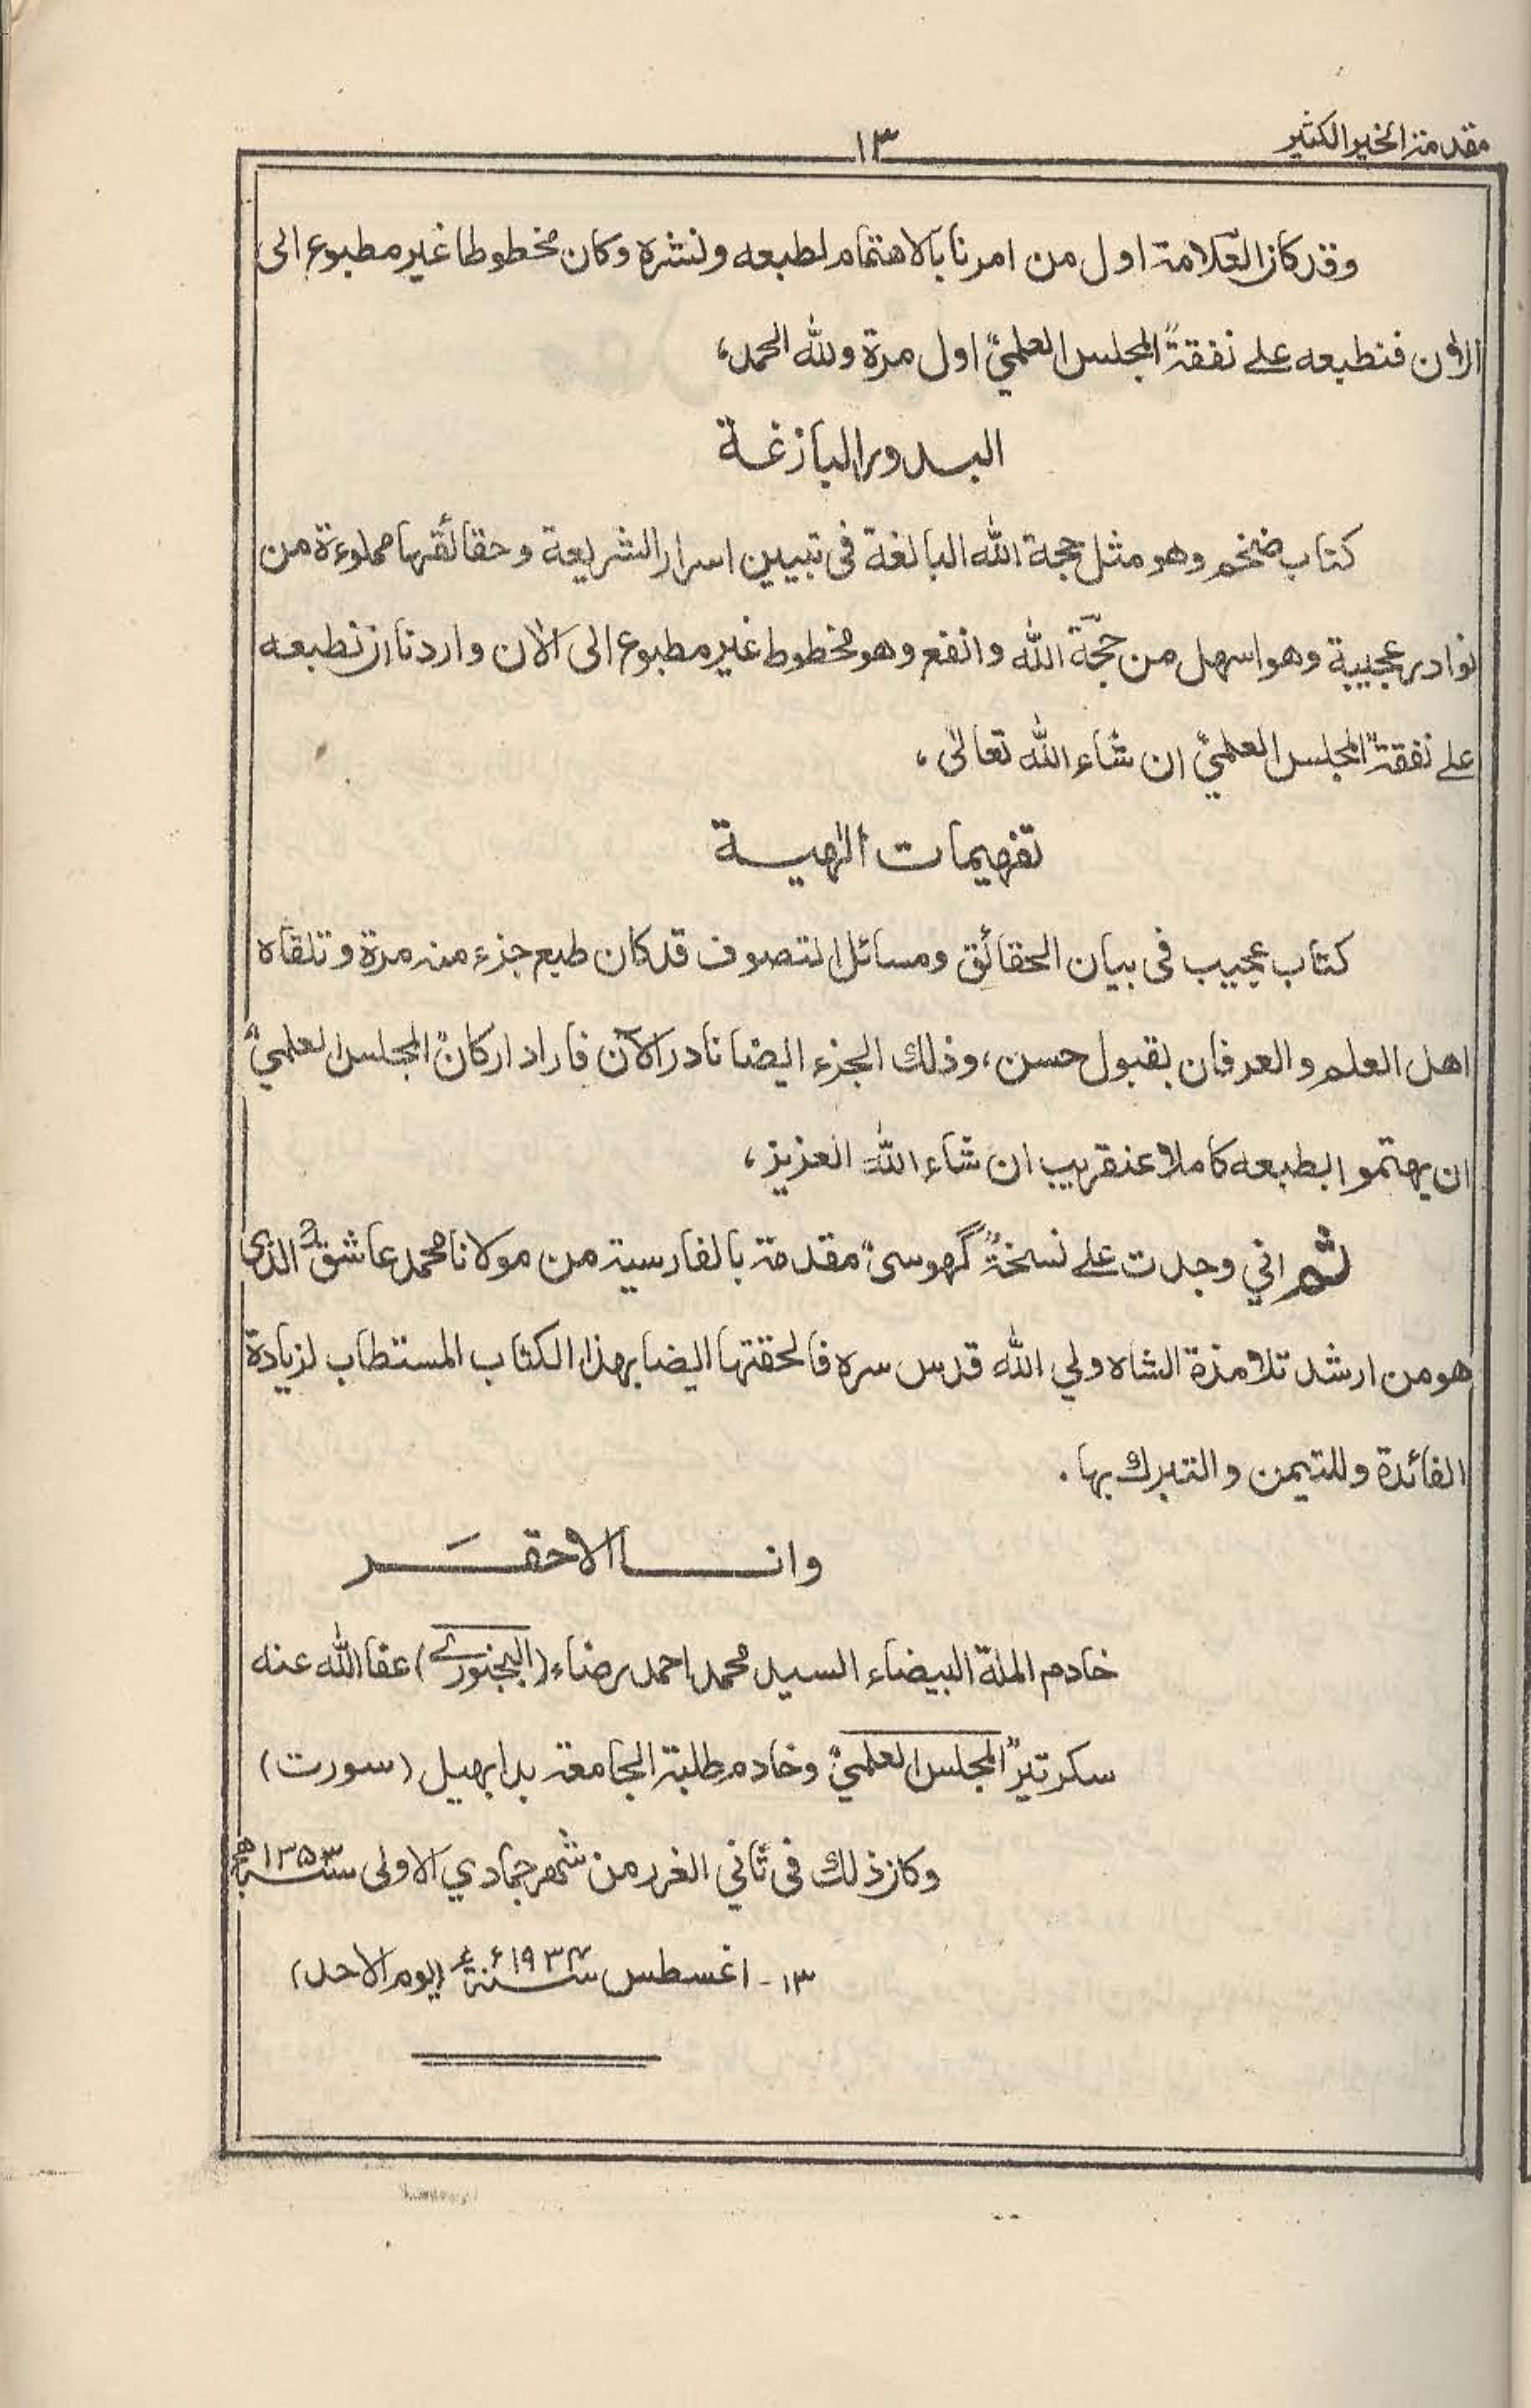 مقدمة الخير الكثير
١٣
وقد كان العلامة اول من امرنا بالاهتمام لطبعه ونشره وكان مخطوطا غير مطبوع الى
الاٰن فنطبعه علے نفقة "المجلس العلمي" اول مرة ولله الحمد،
البدور البازغة
كتاب ضخم وهو مثل حجة الله البالغة فى تبيين اسرار الشريعة وحقائقها مملوءة من
نوادر عجيبة وهو اسهل من حجّة الله وانفع وهو مخطوط غير مطبوع الى الاٰن واردنا ان نطبعه
علے نفقة "المجلس العلمي" ان شاء الله تعالىٰ،
تفهيمات الٰهية
كتاب عجيب فى بيان الحقائق ومسائل التصوف قد كان طبع جزء منه مرة وتلقاه
اهل العلم والعرفان بقبول حسن، وذلك الجزء ايضا نادر الآن فاراد اركان "المجلس العلمي"
ان يهتموا بطبعه كاملا عنقريب ان شاء الله العزيز،
ثم اني وجدت علے نسخة "گهوسى" مقدمة بالفارسية من مولانا محمد عاشقؒ الذى
هو من ارشد تلامذة الشاه ولي الله قدس سره فالحقتها ايضا بهذا الكتاب المستطاب لزيادة
الفائدة وللتيمن والتبرك بها.
وانا الاحقَر
خادم الملة البيضاء السيد محمد احمد رضاء (البجنورے) عفا الله عنه
سكرتير "المجلس العلمي" وخادم طلبة الجامعة بدابهيل (سورت)
وكان ذلك فى ثاني الغرر من شهر جمادي الاولى سنة ١٣٥٣ھ
١٣- اغسطس سنة ١٩٣٤ء (يوم الاحد)